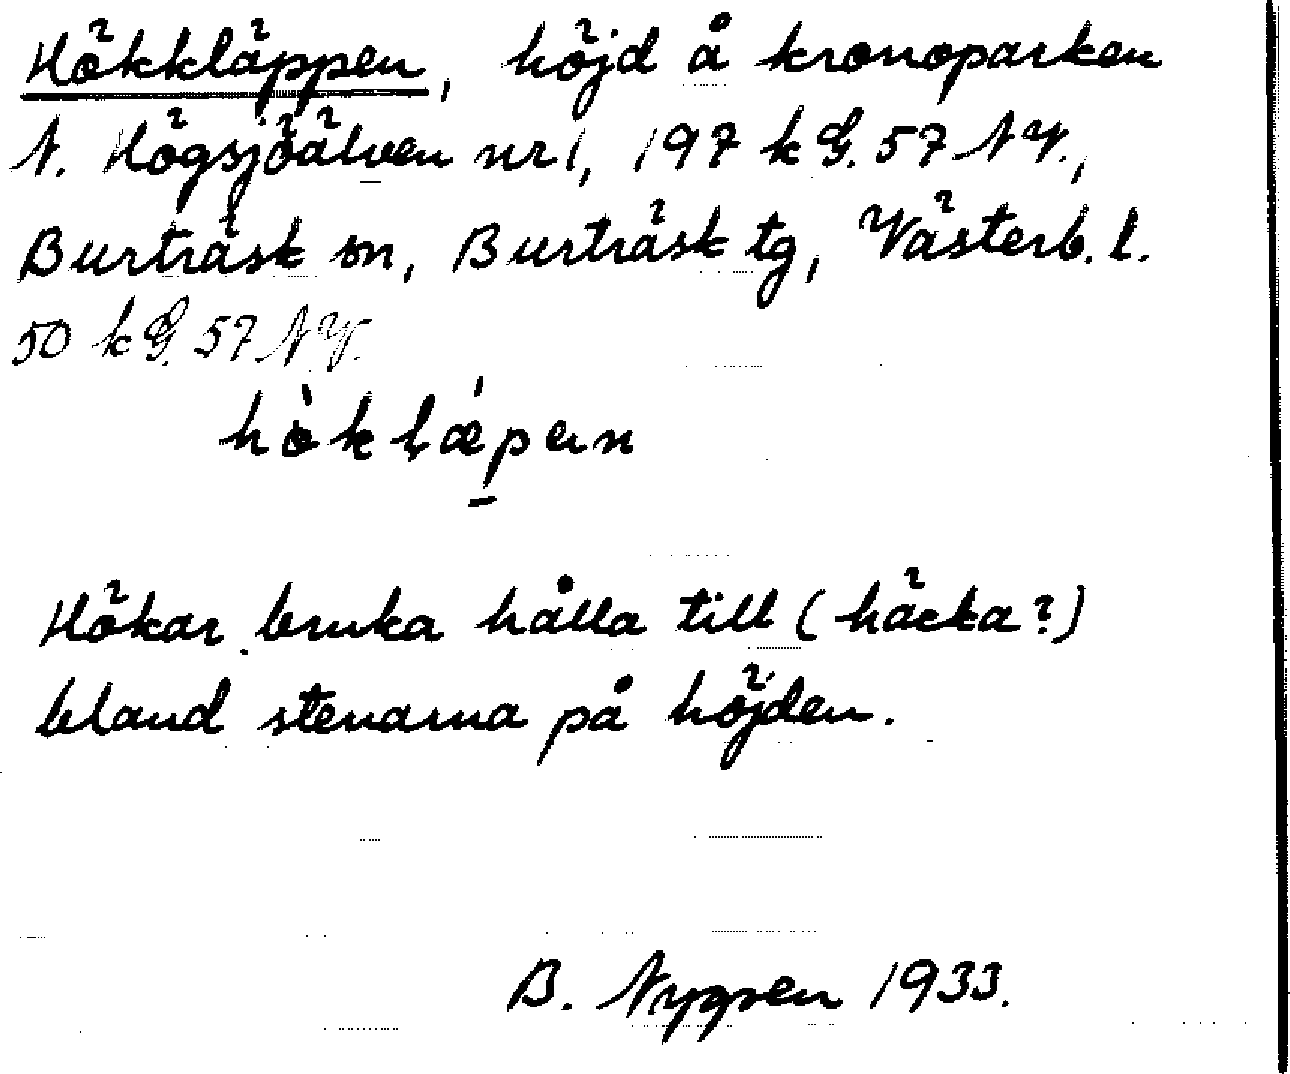 Hökkläppen, höjd å kronoparken
N. Högsjöälven nr 1, 197 k G. 57 N V.,
Burträsk sn, Burträsk tg, Västerb. l.
50 k G. 57 N V.
hὸklǽpen
Hökar bruka hålla till (häcka?)
bland stenarna på höjden.
B. Nygren 1933.